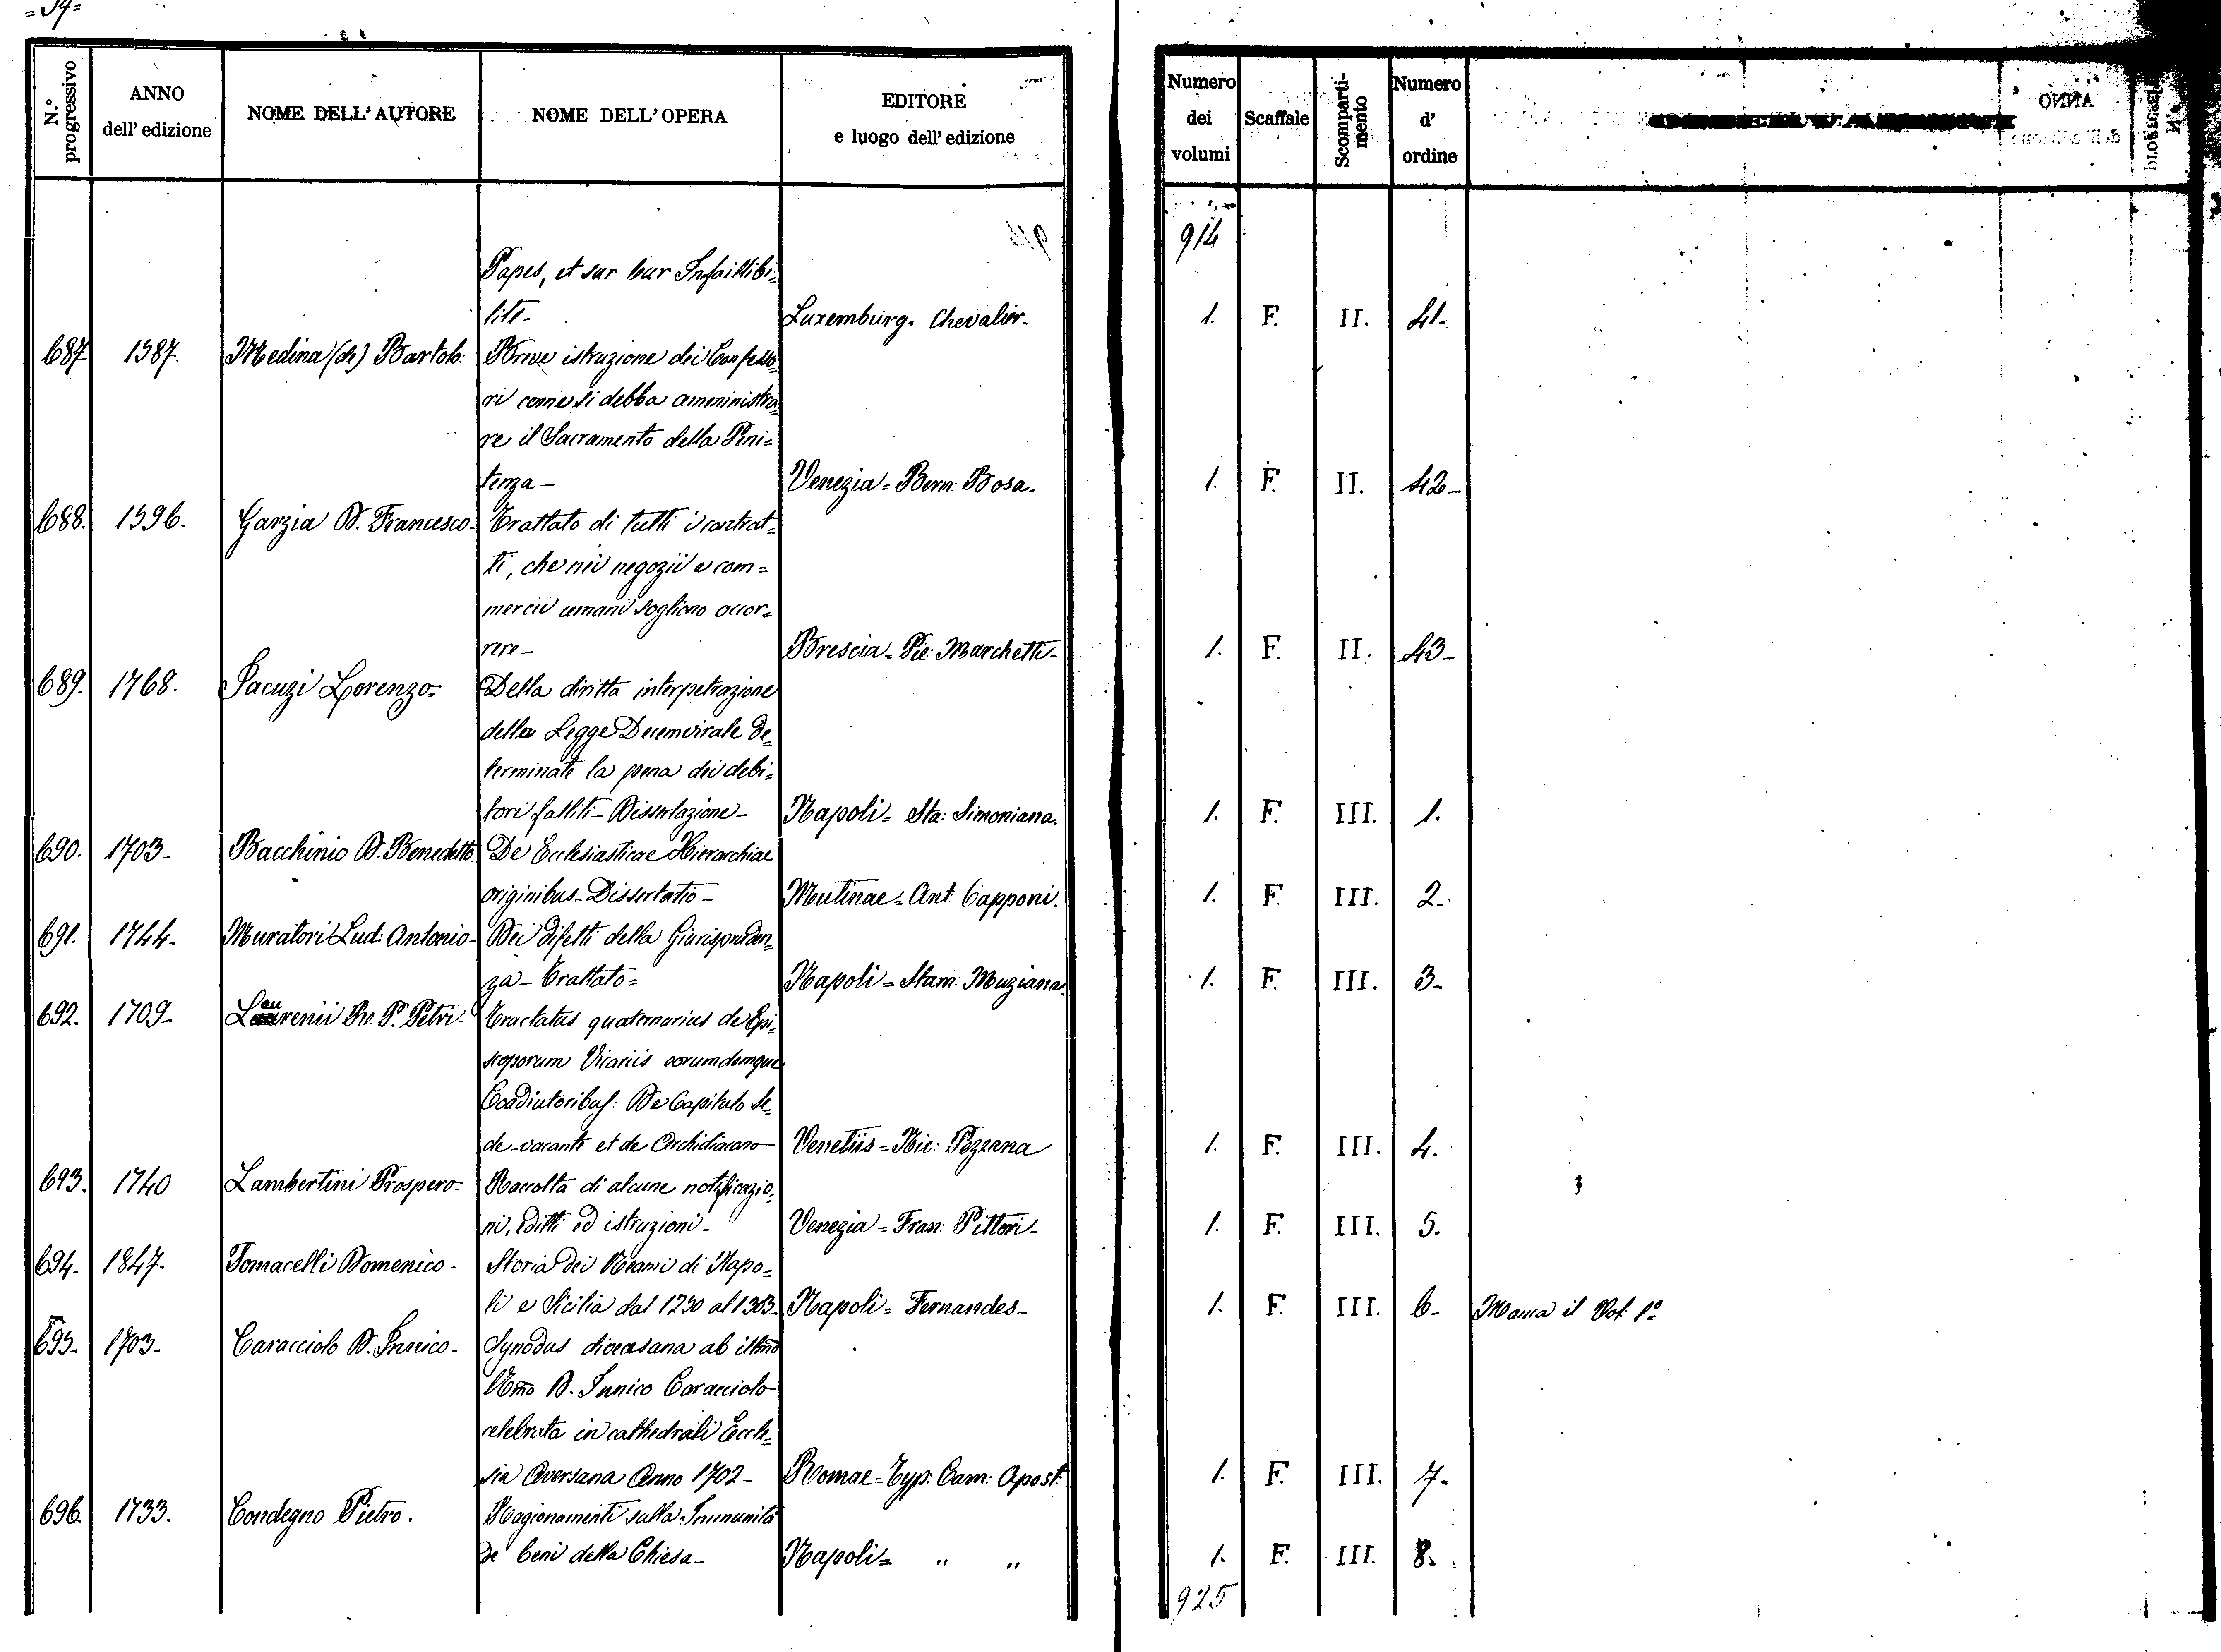 =57=
N.º progressivo ANNO dell' edizione NOME DELL' AUTORE NOME DELL' OPERA EDITORE e luogo dell' edizione Numero dei volumi Scaffale Scomparti-mento Numero d' ordine
914
Papes, et sur leur Infaillibi=
lité- Luxemburg. Chevalier- 1. F. II. 41-
687. 1587. Medina (de) Bartolo: Breve istruzione dei Confesso=
ri come si debba amministra=
re il Sacramento della Peni=
tenza- Venezia= Bern: Bosa- 1. F. II. 42-
688. 1596. Garzia D. Francesco- Trattato di tutti i contrat=
ti, che nei negozii e com=
mercii umani sogliono occor=
rere- Brescia= Pie: Marchetti- 1. F. II. 43-
689. 1768. Pacuzi Lorenzo= Della diritta interpetrazione
della Legge Decemvirale de=
terminate la pena dei debi=
tori falliti- Dissertazione- Napoli= Sta: Simoniana. 1. F. III. 1.
690. 1703- Bacchinio D. Benedetto. De Ecclesiasticae Hierarchiae
originibus- Dissertatio- Mutinae= Ant: Capponi. 1. F. III. 2.
691. 1744- Muratori Lud: Antonio- Dei difetti della Giurispruden=
za- Trattato= Napoli= Stam: Muziana. 1. F. III. 3-
692. 1709- Leurenii Pr. P. Petri- Tractatus quaternarius de Epi=
scoporum Vicariis eorumdemque
Coadiutoribus: De Capitulo Se=
de-vacante et de Archidiacono Venetiis= Nic: Pezzana 1. F. III. 4.
693. 1740 Lambertini Prospero= Raccolta di alcune notificazio=
ni, editti ed istruzioni- Venezia= Fran: Pitteri- 1. F. III. 5.
694- 1847. Tomacelli Domenico- Storia dei Reami di Napo=
li e Sicilia dal 1250 al 1303- Napoli= Fernandes- 1. F. III. 6- Manca il Vol: 1º
695- 1703- Caracciolo D. Innico- Synodus diocesana ab illmo
Rmo D. Innico Caracciolo
celebrata in cathedrali Eccle=
sia Aversana Anno 1702- Romae= Typ: Cam: Apost: 1. F. III. 7-
696. 1733. Condegno Pietro. Ragionamenti sulla Immunità
de' beni della Chiesa- Napoli= " " 1. F. III. 8.
925